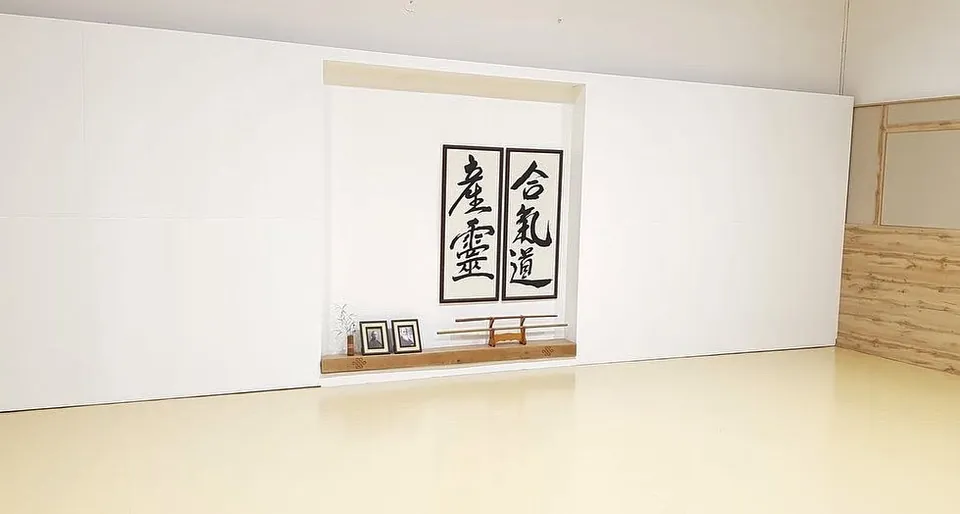 合氣道
産靈